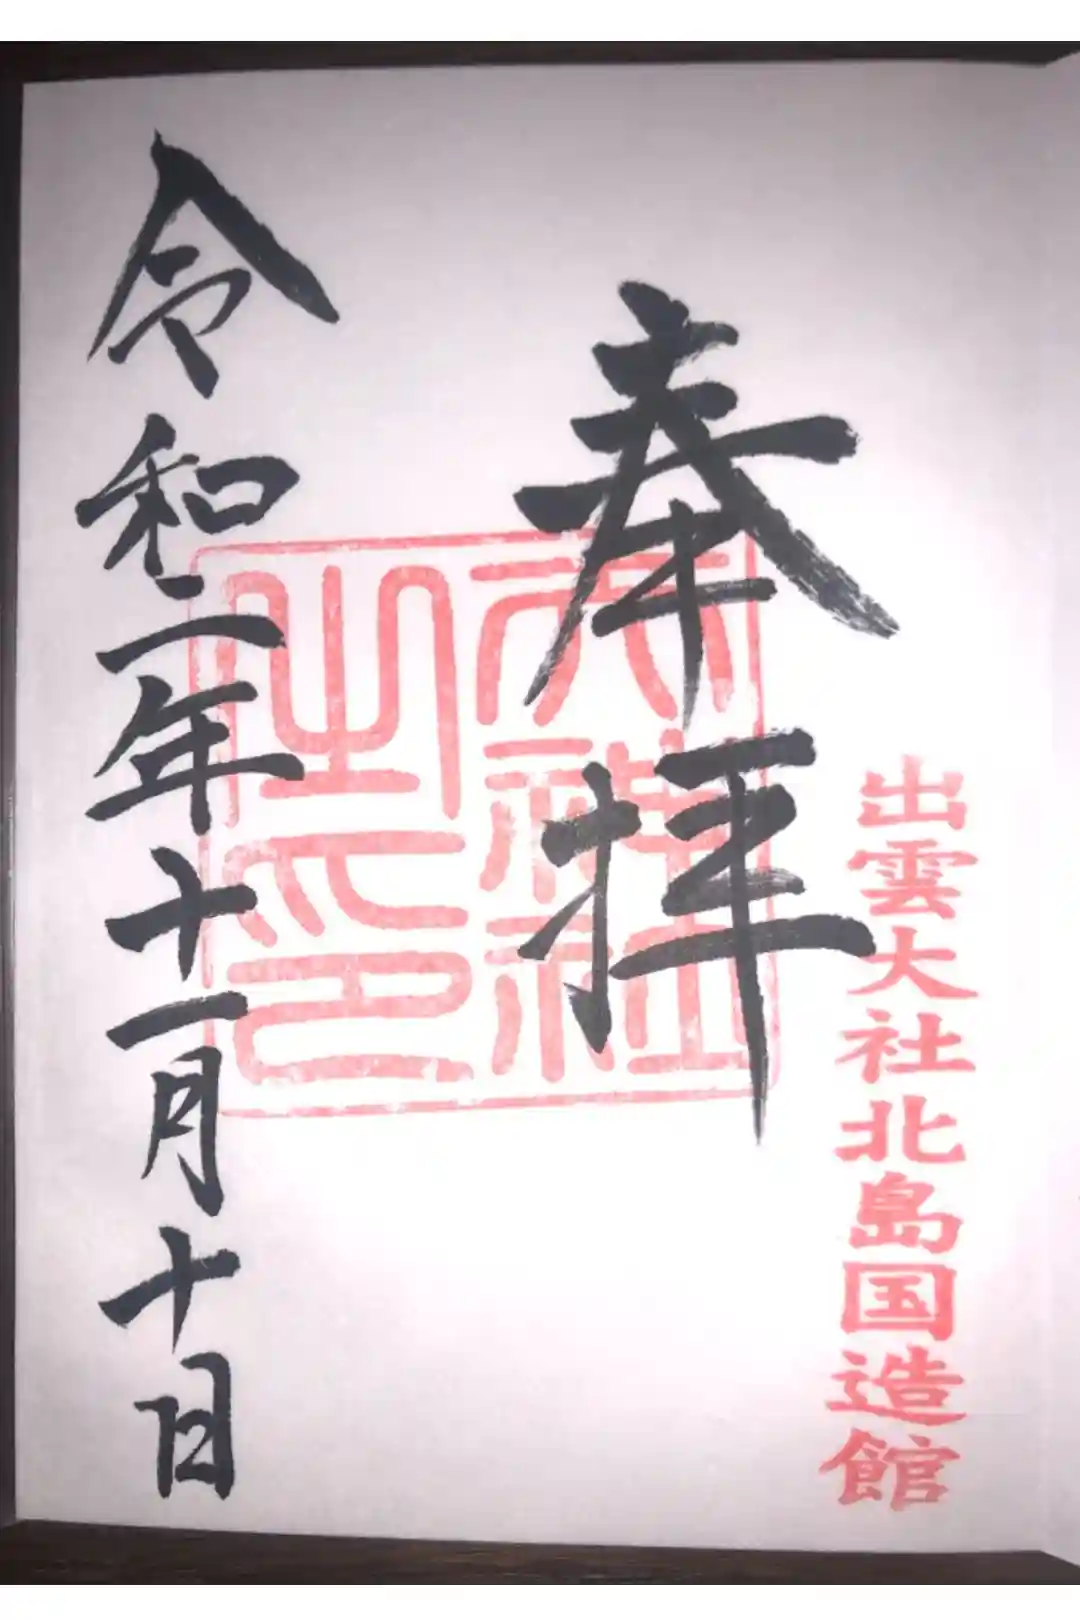 出雲大社北島国造館
奉拝
天神社
之印
令和二年十一月十日